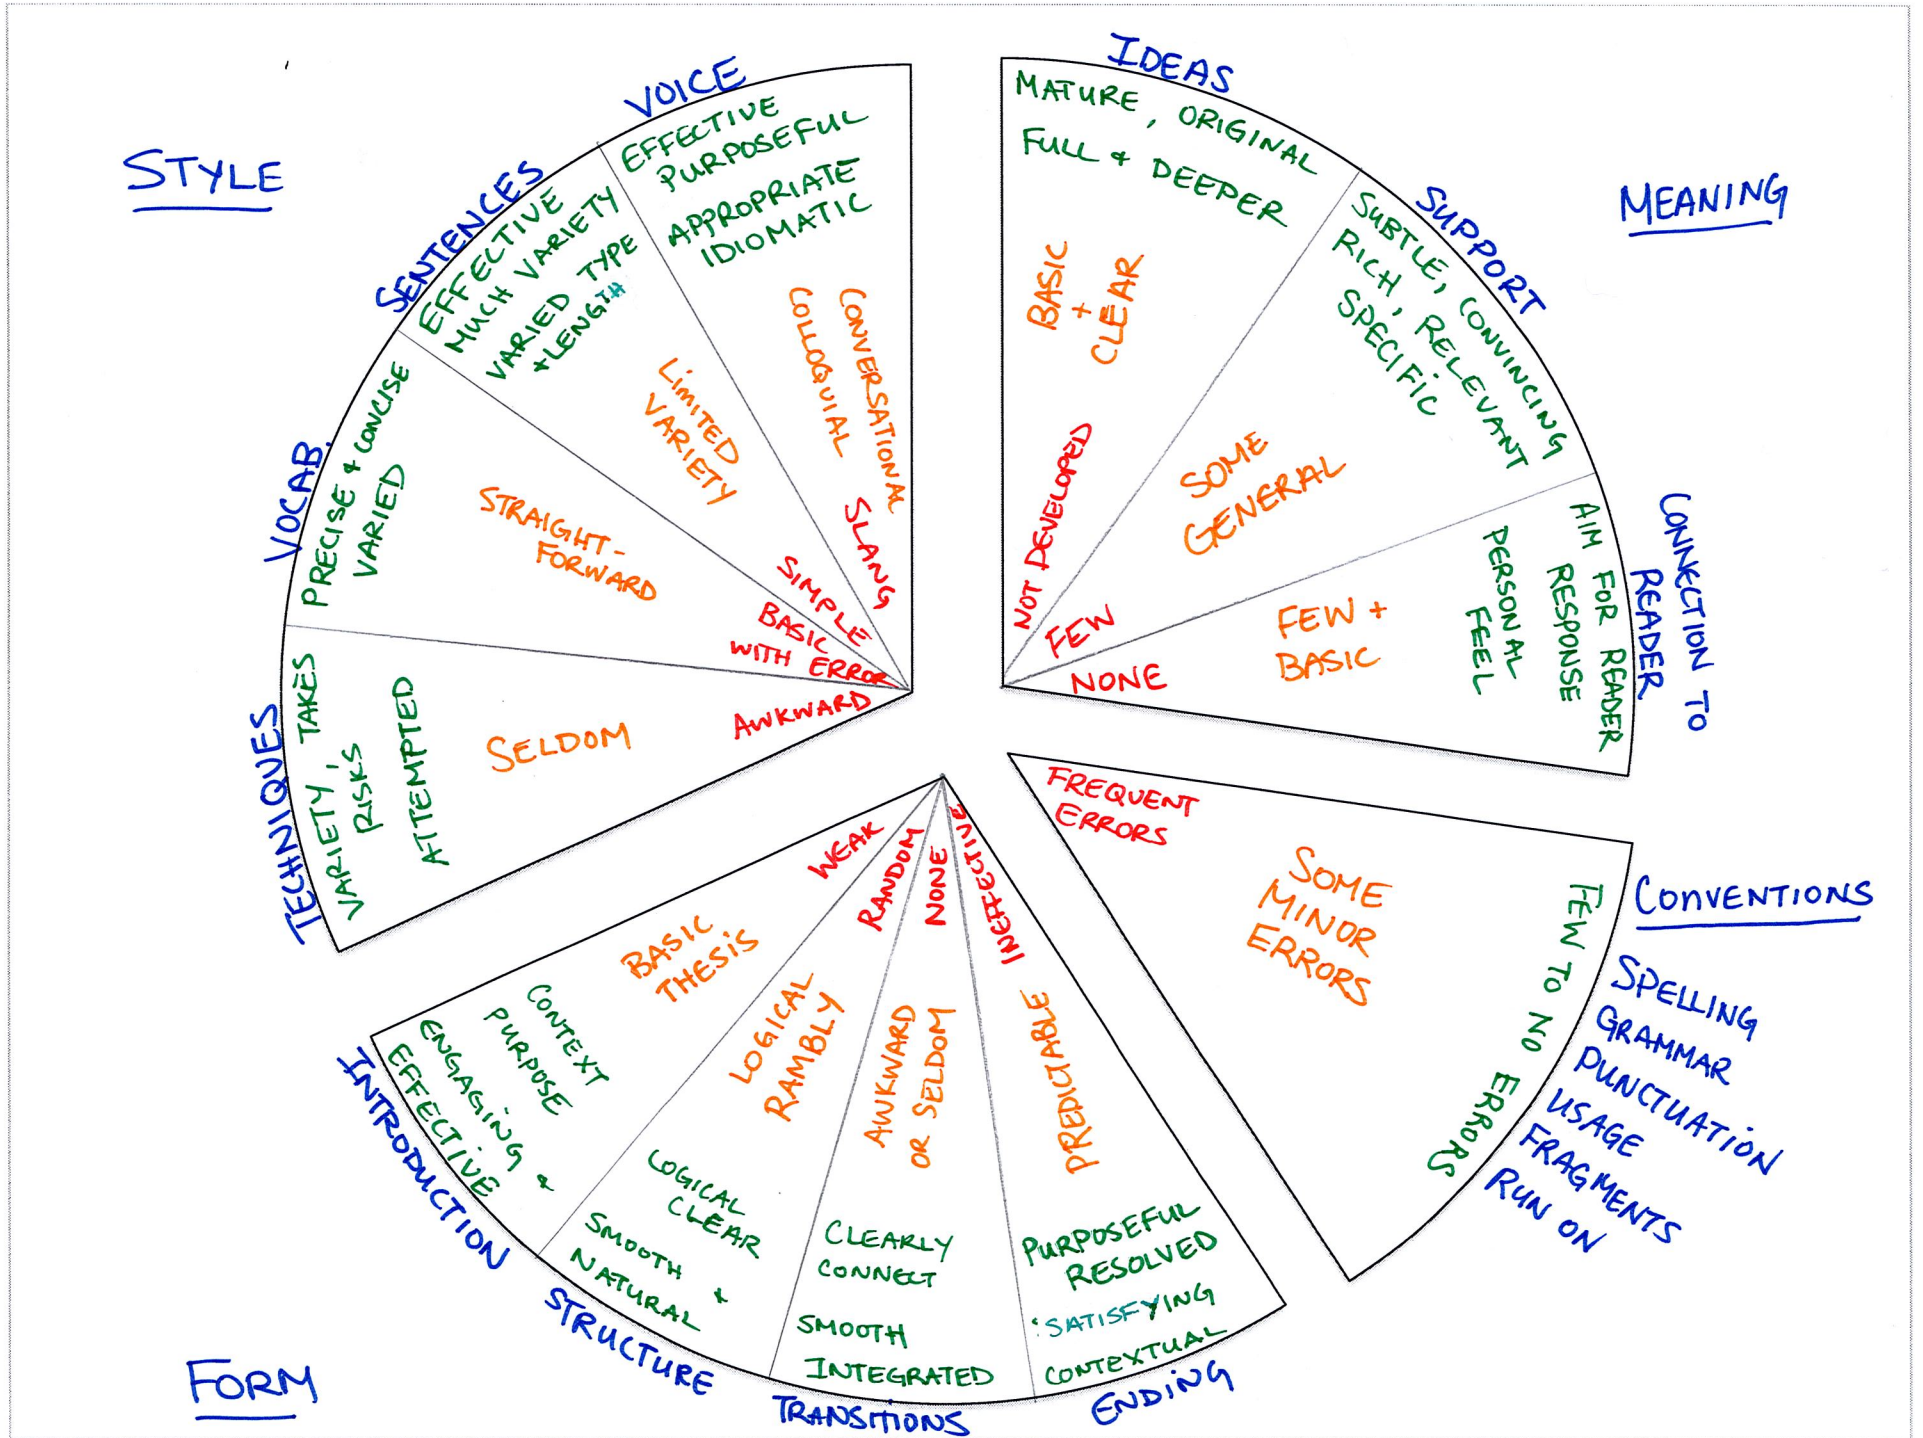 STYLE
VOICE
EFFECTIVE
PURPOSEFUL
APPROPRIATE
IDIOMATIC
CONVERSATIONAL
COLLOQUIAL
SLANG
SENTENCES
EFFECTIVE
MUCH VARIETY
VARIED TYPE
+ LENGTH
LIMITED
VARIETY
SIMPLE
VOCAB.
PRECISE + CONCISE
VARIED
STRAIGHT-
FORWARD
BASIC
WITH ERROR
TECHNIQUES
VARIETY, TAKES
RISKS
ATTEMPTED
SELDOM
AWKWARD
MEANING
IDEAS
MATURE, ORIGINAL
FULL + DEEPER
BASIC
+
CLEAR
NOT DEVELOPED
SUPPORT
SUBTLE, CONVINCING
RICH, RELEVANT
SPECIFIC
SOME
GENERAL
FEW
CONNECTION TO
READER
AIM FOR READER
RESPONSE
PERSONAL
FEEL
FEW +
BASIC
NONE
CONVENTIONS
SPELLING
GRAMMAR
PUNCTUATION
USAGE
FRAGMENTS
RUN ON
FEW TO NO ERRORS
SOME
MINOR
ERRORS
FREQUENT
ERRORS
FORM
INTRODUCTION
WEAK
BASIC
THESIS
CONTEXT
PURPOSE
ENGAGING +
EFFECTIVE
STRUCTURE
RANDOM
LOGICAL
RAMBLY
LOGICAL
CLEAR
SMOOTH +
NATURAL
TRANSITIONS
NONE
AWKWARD
OR SELDOM
CLEARLY
CONNECT
SMOOTH
INTEGRATED
ENDING
INEFFECTIVE
PREDICTABLE
PURPOSEFUL
RESOLVED
SATISFYING
CONTEXTUAL